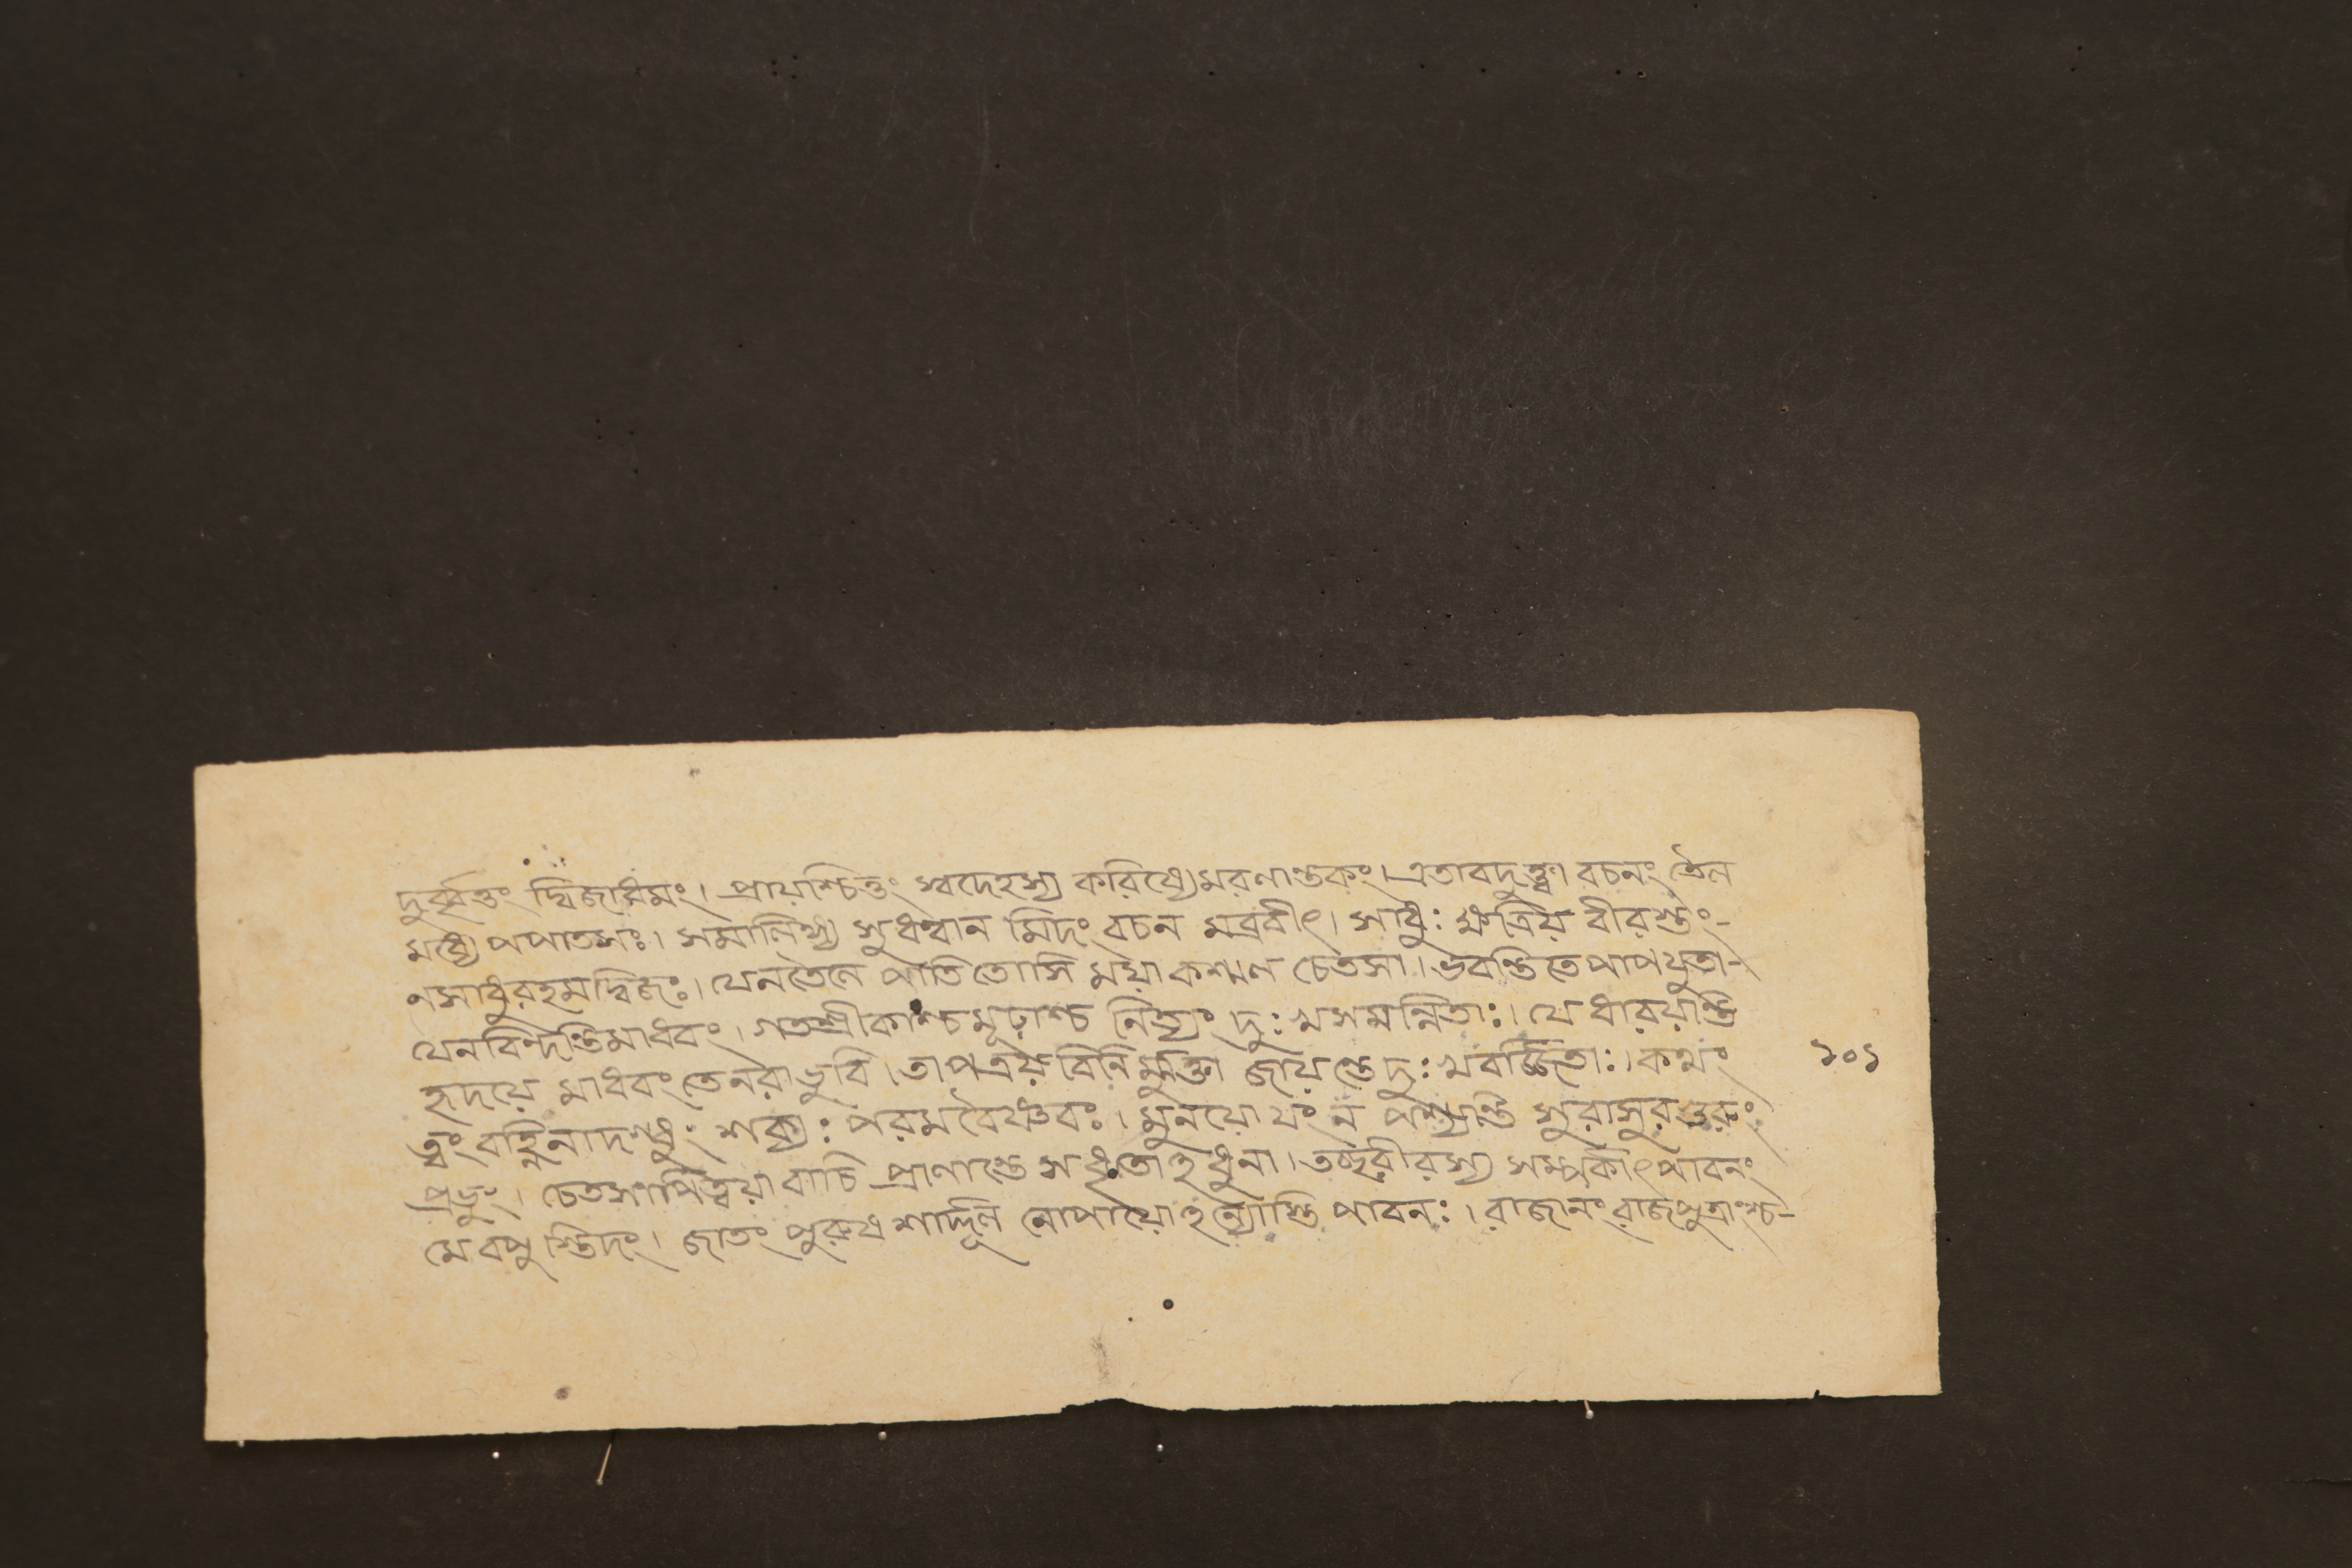 দুর্ব্বৃত্তং দ্বিজাধমং। প্রায়শ্চিত্তং স্বদেহস্য করিষ্যেমরণান্তকং। এতাবদুক্ত্বা বচনং তৈল
মধ্যে পপাতসঃ। সমালিঙ্গ্য সুধন্বান মিদং বচন মব্রবীৎ। সাধুঃ ক্ষত্রিয় বীরস্তুং-
নসাধুরহমদ্বিজঃ। যেনতৈলে পাতিতোসি ময়া কশ্মল চেতসা। ভবন্তিতে পাপযুতা-
যেনবিন্দন্তিমাধবং। গতশ্রীকাশ্চমূঢাশ্চ নিত্যং দুঃখসমন্নিতাঃ। যে ধারয়ন্তি
হৃদয়ে মাধবং তেনরাভুবি। তাপত্রয় বিনির্ম্মুক্তা জায়ন্তেদুঃখবর্জ্জিতাঃ। কথং ১০১
ত্বং বহ্নিনাদগ্ধুং শক্যঃ পরমবৈষ্ণবঃ। মুনয়োযং ন পশ্যন্তি সুরাসুরগুরুং
প্রভুং। চেতসাপিত্বয়া বাচি প্রাণান্তে সধৃতোঽধুনা। তচ্ছরীরস্য সম্পর্কাৎপাবনং
মে বপুস্ত্বিদং। জাতং পুরুষশার্দ্দূল নোপায়োঽন্যোস্তি পাবনঃ। রাজানং রাজপুত্রাংশ্চ-